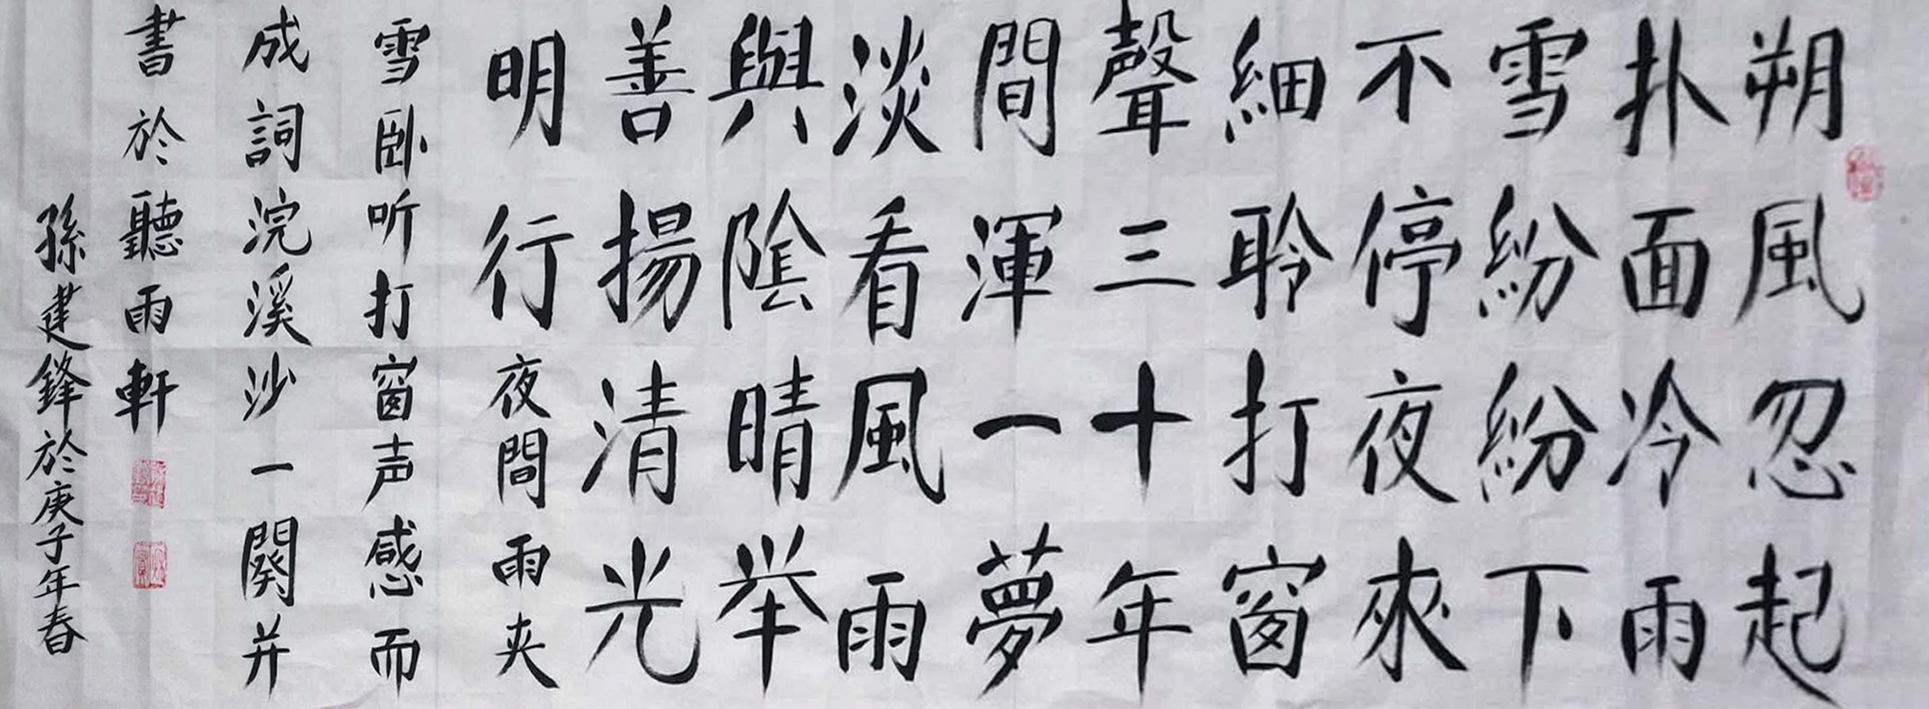 朔風忍起
扑面冷雨
雪紛紛下
不停夜來
細聆打窗
聲三十年
間渾一夢
淡看風雨
與陰晴举
善揚清光
明行夜間雨夹
雪卧听打窗声感而
成詞浣溪沙一闋并
書於聽雨軒
孫建鋒於庚子年春